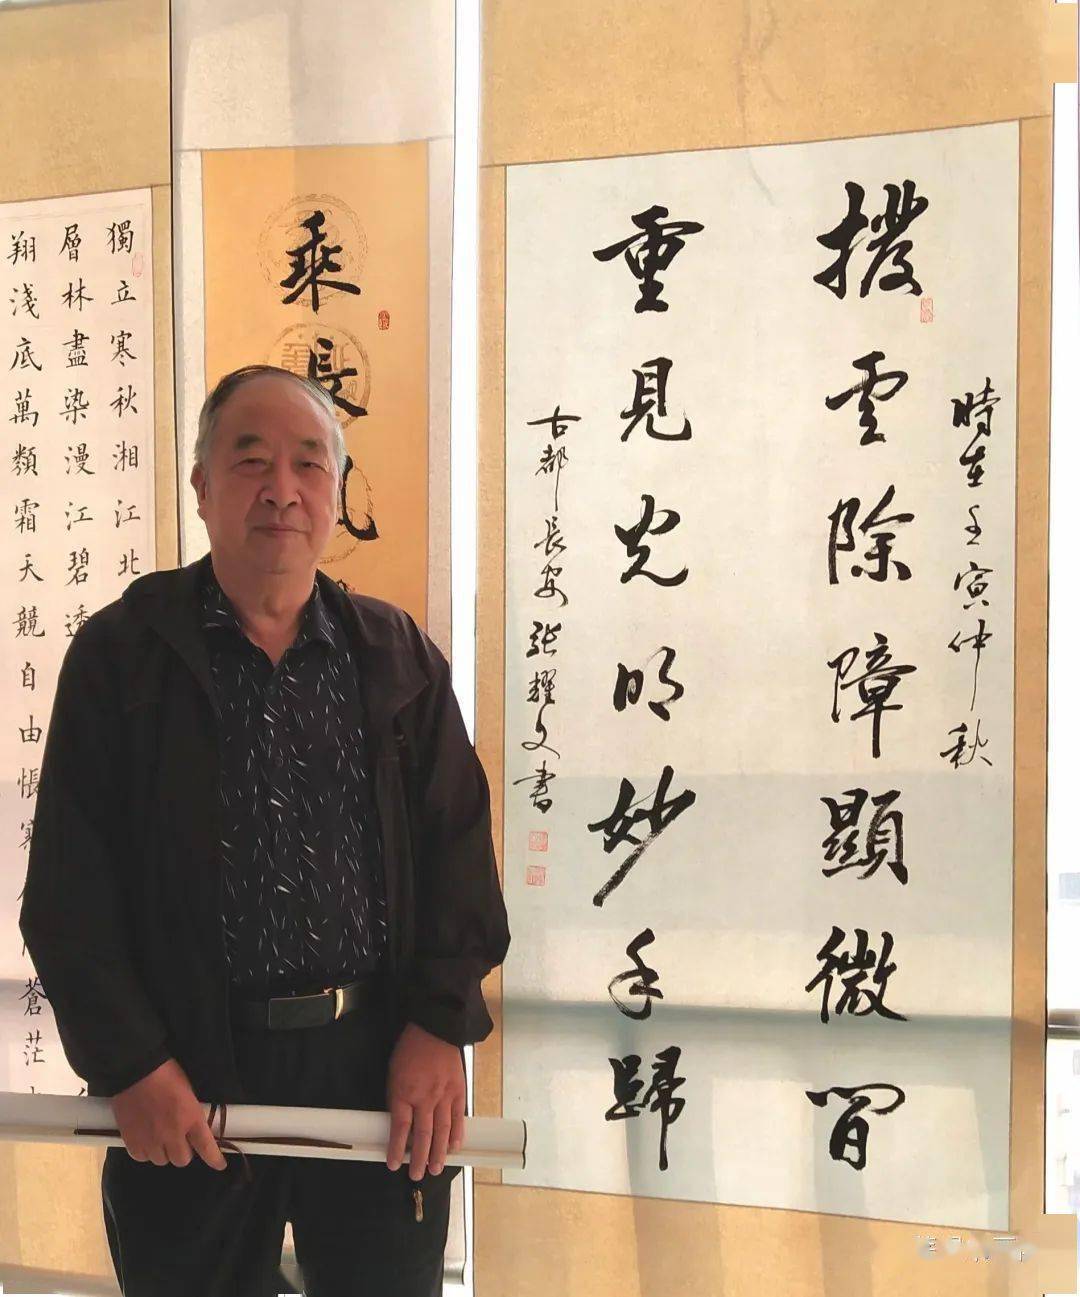 時在壬寅仲秋
撥雲除障顯微間
重見光明妙手歸
古都長安張耀文書
乘長風
獨立寒秋湘江北
層林盡染漫江碧透
翔淺底萬類霜天競自由悵寥
蒼茫